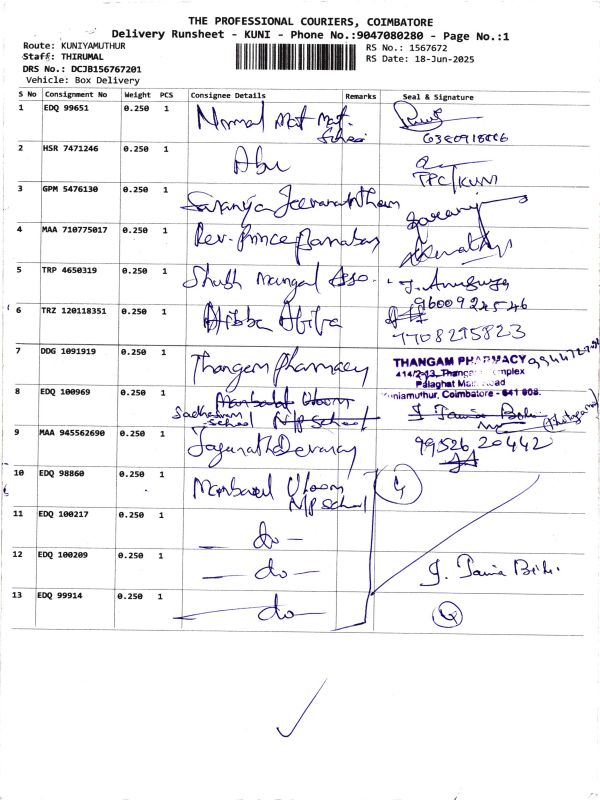 THE PROFESSIONAL COURIERS, COIMBATORE
Delivery Runsheet - KUNI - Phone No.:9047080280 - Page No.:1
Route: KUNIYAMUTHUR
RS No.: 1567672
Staff: THIRUMAL
RS Date: 18-Jun-2025
DRS No.: DCJB156767201
Vehicle: Box Delivery
S No Consignment No Weight PCS Consignee Details Remarks Seal & Signature
1 EDQ 99651 0.250 1 Normal Mat Mat. School
2 HSR 7471246 0.250 1 Abu TPC/KUNI
3 GPM 5476130 0.250 1 Saranya Jeevananthan
4 MAA 710775017 0.250 1 Rev. Prince Barnabas
5 TRP 4650319 0.250 1 Shubh Mangal Asso. J. Anusuya
9600924546
6 TRZ 120118351 0.250 1 7708215823
7 DDG 1091919 0.250 1 Thangam Pharmacy THANGAM PHARMACY
414/2-13, Thangam Complex
Palaghat Main Road
Kuniamuthur, Coimbatore - 641 008.
8 EDQ 100969 0.250 1
School N/P School
9 MAA 945562690 0.250 1 99526 20442
10 EDQ 98860 0.250 1 N/P School 4
11 EDQ 100217 0.250 1 — do —
12 EDQ 100209 0.250 1 — do —
13 EDQ 99914 0.250 1 — do —